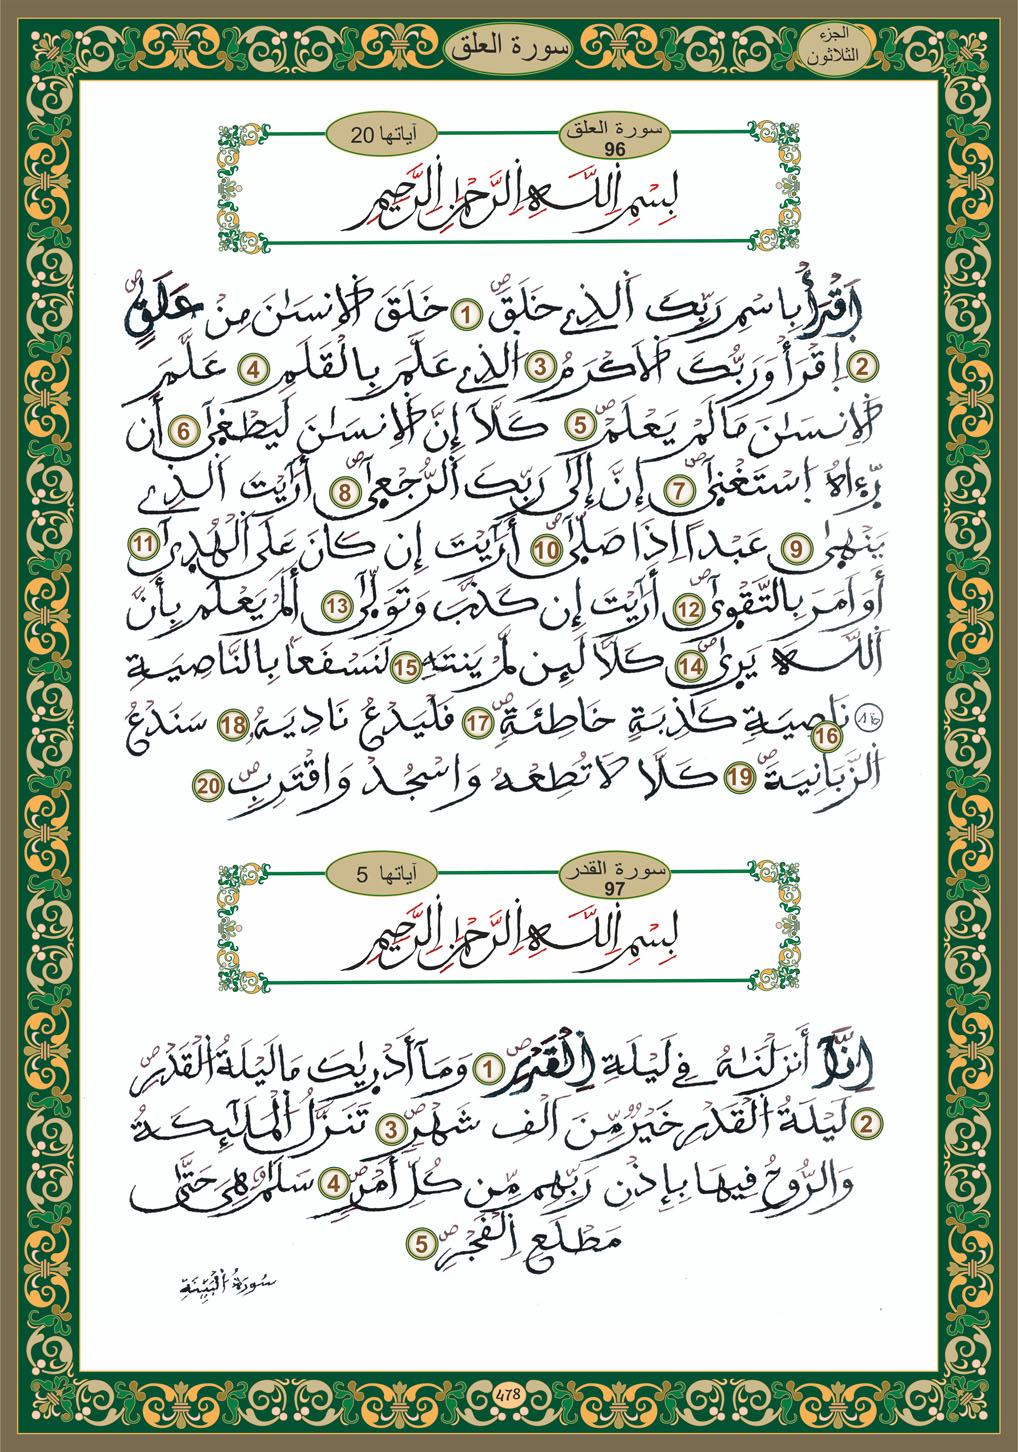 سورة العلق
الجزء
الثلاثون
سورة العلق
96
آياتها 20
بِسْمِ اِ۬للَّهِ اِ۬لرَّحْمَٰنِ اِ۬لرَّحِيمِ
اِ۪قْرَأْ بِاسْمِ رَبِّكَ اَ۬لذِے خَلَقَ ص 1 خَلَقَ اَ۬لِانسَٰنَ مِنْ عَلَقٍ ص
2 اِ۪قْرَأْ وَرَبُّكَ اَ۬لَاكْرَمُ 3 اُ۬لذِے عَلَّمَ بِالْقَلَمِ 4 عَلَّمَ
اَ۬لِانسَٰنَ مَا لَمْ يَعْلَمْ ص 5 كَلَّآ إِنَّ اَ۬لِانسَٰنَ لَيَطْغ۪يٰٓ 6 أَن
رّ۪ء۪اهُ اُ۪سْتَغْن۪يٰٓ ص 7 إِنَّ إِلَىٰ رَبِّكَ اَ۬لرُّجْع۪يٰٓ ص 8 أَرَٰٓيْتَ اَ۬لذِے
يَنْه۪يٰ 9 عَبْداً اِذَا صَلّ۪يٰٓ ص 10 أَرَٰٓيْتَ إِن كَانَ عَلَى اَ۬لْهُد۪يٰٓ 11
أَوَ اَمَرَ بِالتَّقْو۪يٰٓ ص 12 أَرَٰٓيْتَ إِن كَذَّبَ وَتَوَلّ۪يٰٓ 13 أَلَمْ يَعْلَم بِأَنَّ
اَ۬للَّهَ يَر۪يٰ ص 14 كَلَّا لَئِن لَّمْ يَنتَهِ 15 لَنَسْفَعاً بِالنَّاصِيَةِ
16 نَاصِيَةٍ كَٰذِبَةٍ خَاطِئَةٍ ص 17 فَلْيَدْعُ نَادِيَهُۥ 18 سَنَدْعُ
اُ۬لزَّبَانِيَةَ ص 19 كَلَّا لَا تُطِعْهُ وَاسْجُدْ وَاقْتَرِب ص 20
سورة القدر
97
آياتها 5
بِسْمِ اِ۬للَّهِ اِ۬لرَّحْمَٰنِ اِ۬لرَّحِيمِ
اِنَّآ أَنزَلْنَٰهُ فِے لَيْلَةِ اِ۬لْقَدْرِ ص 1 وَمَآ أَدْر۪يٰكَ مَا لَيْلَةُ اُ۬لْقَدْرِ ص
2 لَيْلَةُ اُ۬لْقَدْرِ خَيْرٌ مِّنَ اَلْفِ شَهْرٍ ص 3 تَنَزَّلُ اُ۬لْمَلَٰٓئِكَةُ
وَالرُّوحُ فِيهَا بِإِذْنِ رَبِّهِم مِّن كُلِّ أَمْرٍ ص 4 سَلَٰمٌ هِيَ حَتَّىٰ
مَطْلَعِ اِ۬لْفَجْرِ ص 5
سُورَةُ اُ۬لْبَيِّنَةِ
478